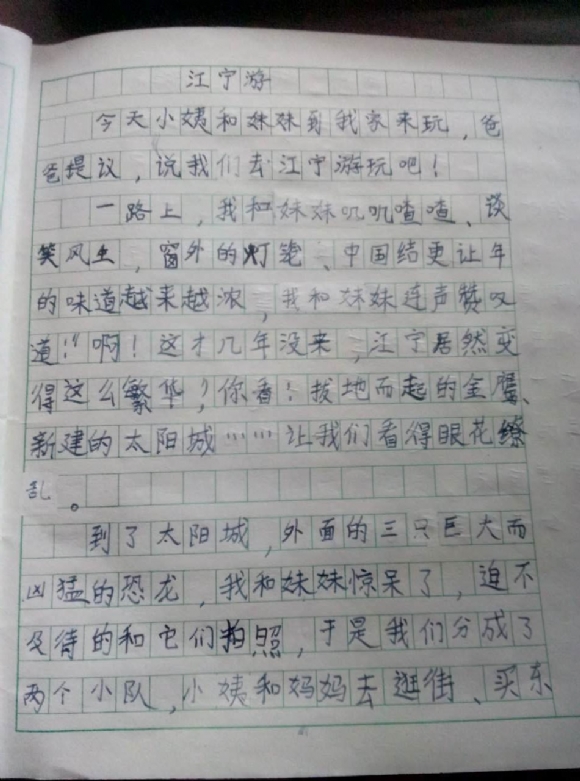 江宁游
今天小姨和妹妹到我家来玩，爸
爸提议，说我们去江宁游玩吧！
一路上，我和妹妹叽叽喳喳、谈
笑风生，窗外的灯笼、中国结更让年
的味道越来越浓，我和妹妹连声赞叹
道：“啊！这才几年没来，江宁居然变
得这么繁华，你看！拔地而起的金鹰、
新建的太阳城……让我们看得眼花缭
乱。
到了太阳城，外面的三只巨大而
凶猛的恐龙，我和妹妹惊呆了，迫不
及待的和它们拍照，于是我们分成了
两个小队，小姨和妈妈去逛街、买东